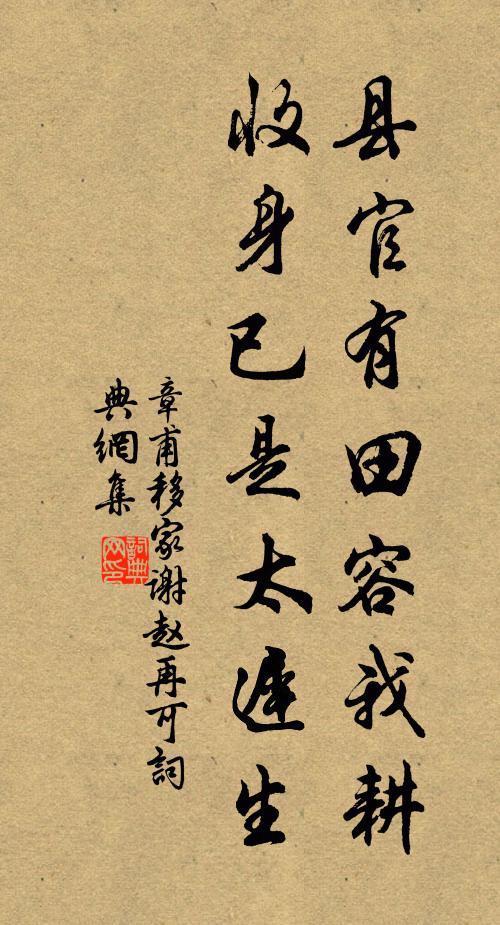 县官有田容我耕
收身已是太遲生
章甫移家谢赵再可詞
典網集
詞典
网印